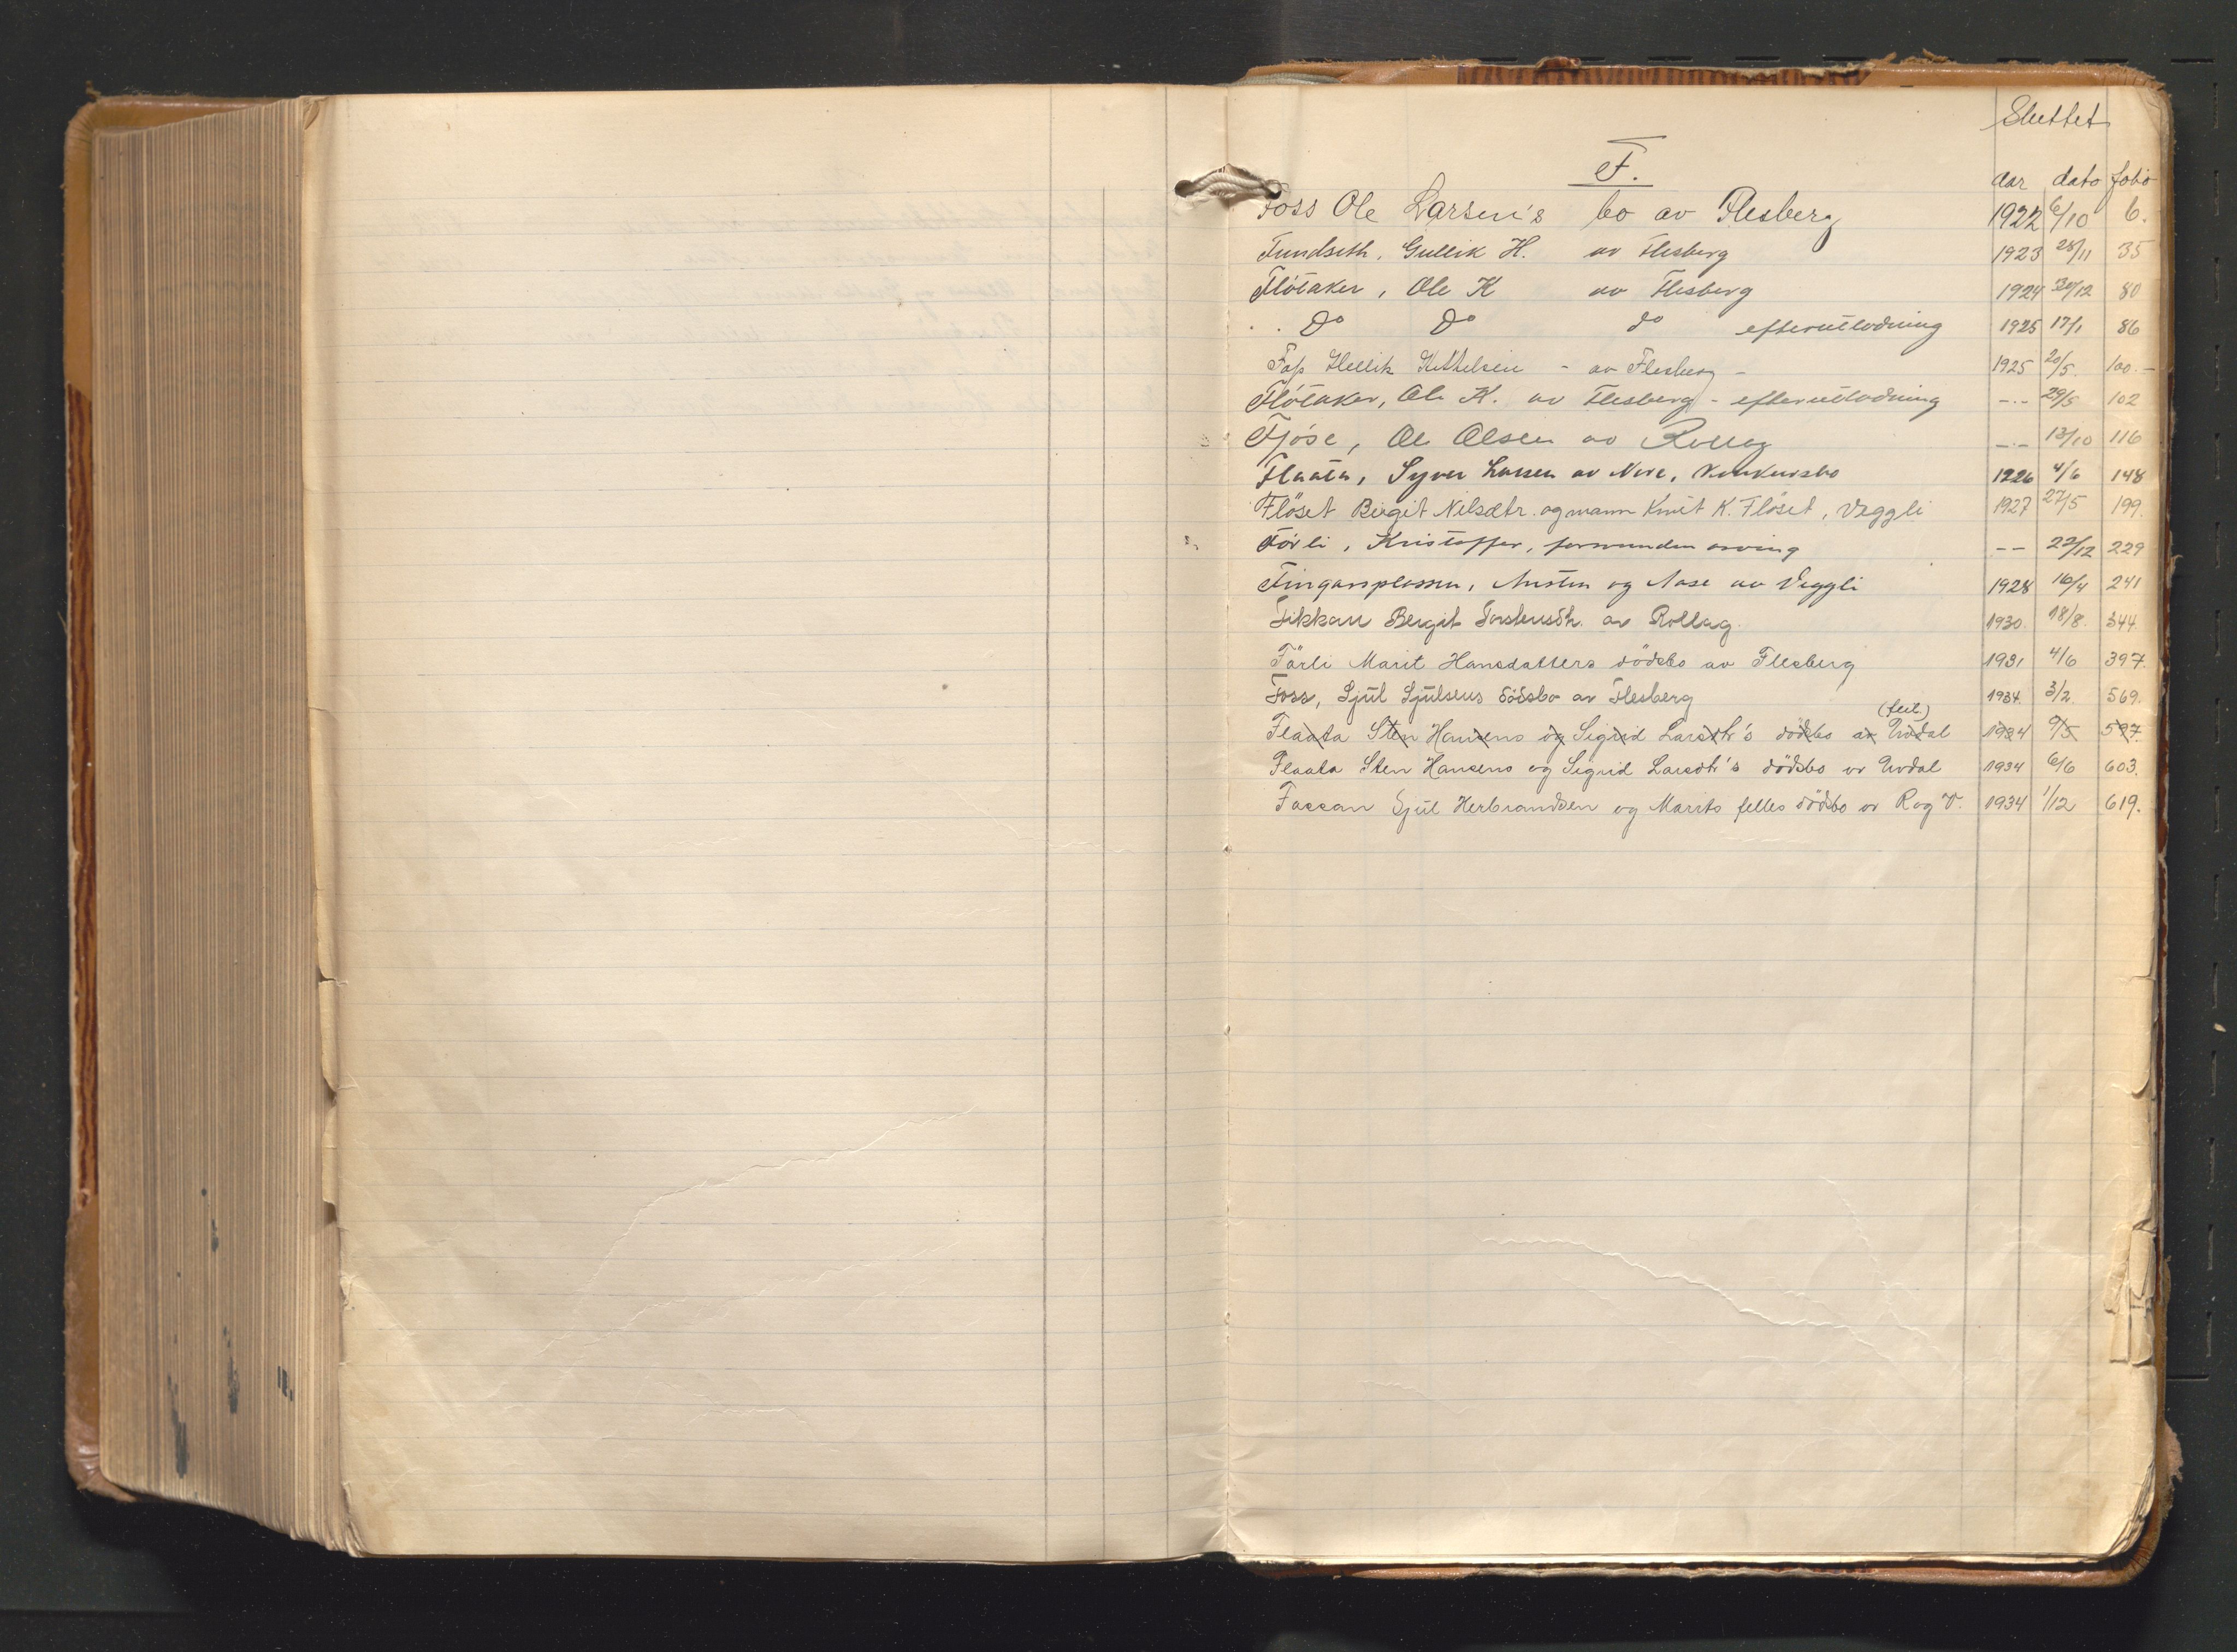 Sluttet
F.
aar dato folio
Foss Ole Larsen's bo av Flesberg 1922 6/10 6.
Fundseth, Gullik H. av Flesberg 1923 28/11 35
Flötaker, Ole K av Flesberg 1924 30/12 80
Do Do do efterutlodning 1925 17/1 86
Foss Hellik Kittilsen - av Flesberg - 1925 20/5. 100.-
Flötaker, Ole K. av Flesberg - efterutlodning -"- 29/5 102
Fjöse, Ole Olsen av Rollag -"- 13/10 116
Flaata, Syver Larsen av Nore, konkursbo 1926 4/6 148
Flöset Birgit Nilsdtr. og mann Knut K. Flöset, Veggli 1927 27/5 199.
Förli, Kristoffer, forsvunden arving -- 22/12 229
Fingarplassen, Anston og Aase av Veggli 1928 16/4 241
Fikkan Bergit Torstensdtr. av Rollag. 1930. 18/8. 344
Förli Marit Hansdatters dödsbo av Flesberg 1931 4/6 397.
Foss, Gjul Gjulsens dödsbo av Flesberg 1934. 3/2. 569.
(feil.)
Flaata Sten Hansens og Sigrid Larsdtr's dödsbo av Uvdal 1934 9/5 597.
Flaata Sten Hansens og Sigrid Larsdtr's dödsbo av Uvdal 1934 6/6 603.
Fossan Gjul Herbrandsen og Marits felles dödsbo av R og V. 1934 1/12 619.